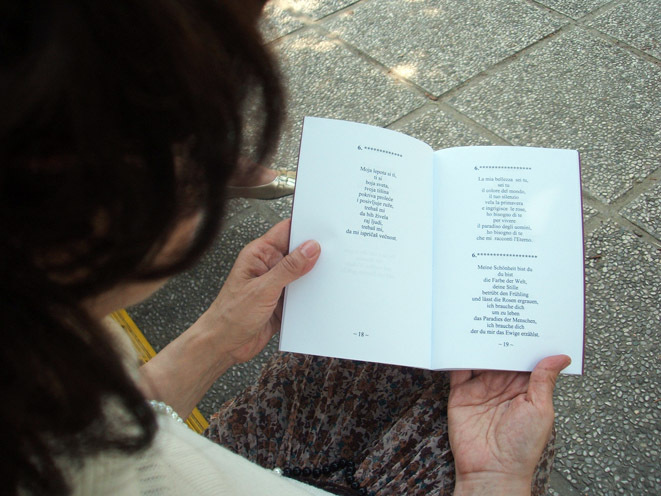 6. **************
Moja lepota si ti,
ti si
boja sveta,
tvoja tišina
pokriva proleće
i posivljuje ruže,
trebaš mi
da bih živela
raj ljudi,
trebaš mi,
da mi ispričaš večnost.
~ 18 ~
6. ******************
La mia bellezza sei tu,
sei tu
il colore del mondo,
il tuo silenzio
vela la primavera
e ingrigisce le rose,
ho bisogno di te
per vivere
il paradiso degli uomini,
ho bisogno di te
che mi racconti l'Eterno.
6. ********************
Meine Schönheit bist du,
du bist
die Farbe der Welt,
deine Stille
betrübt den Frühling
und lässt die Rosen ergrauen,
ich brauche dich
um zu leben
das Paradies der Menschen,
ich brauche dich
der du mir das Ewige erzählst.
~ 19 ~